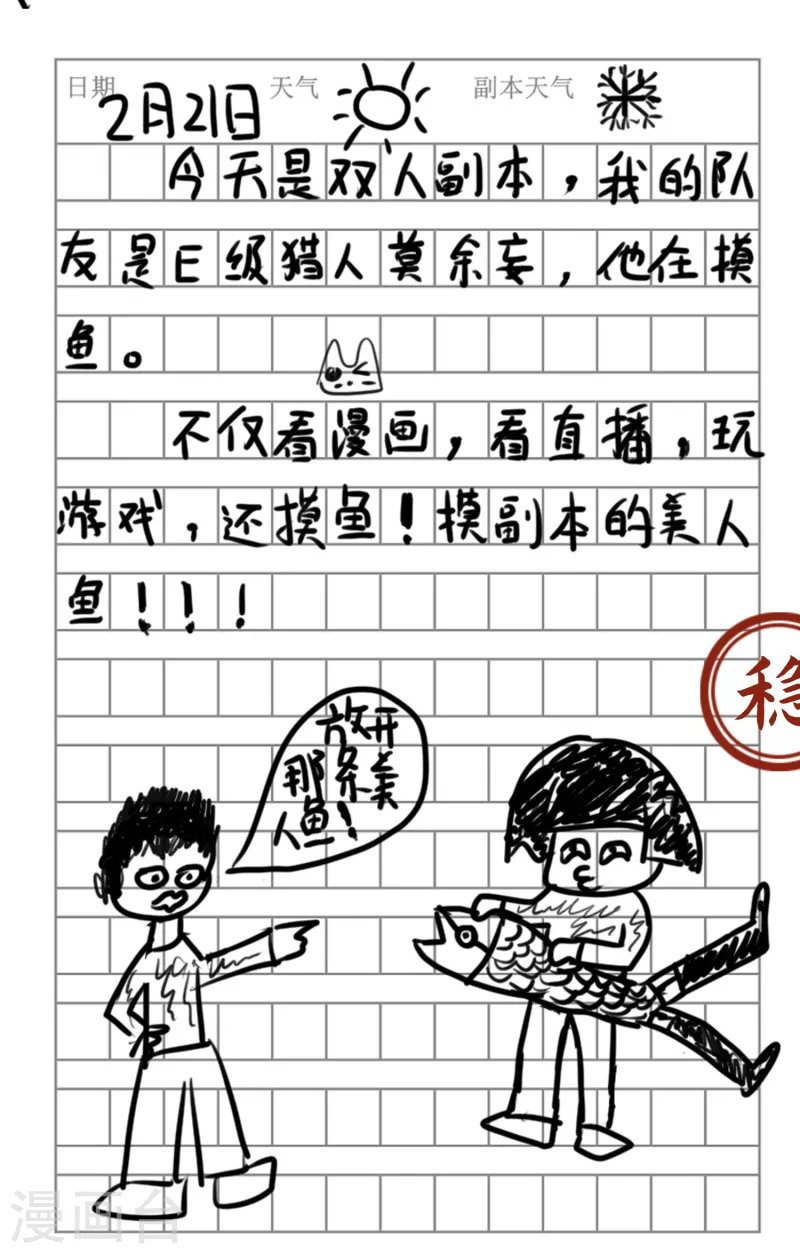 日期 2月21日 天气 副本天气
今天是双人副本，我的队
友是E级猎人莫余妄，他在摸
鱼。
不仅看漫画，看直播，玩
游戏，还摸鱼！摸副本的美人
鱼！！！
稳
放开
那条美
人鱼！
漫画台